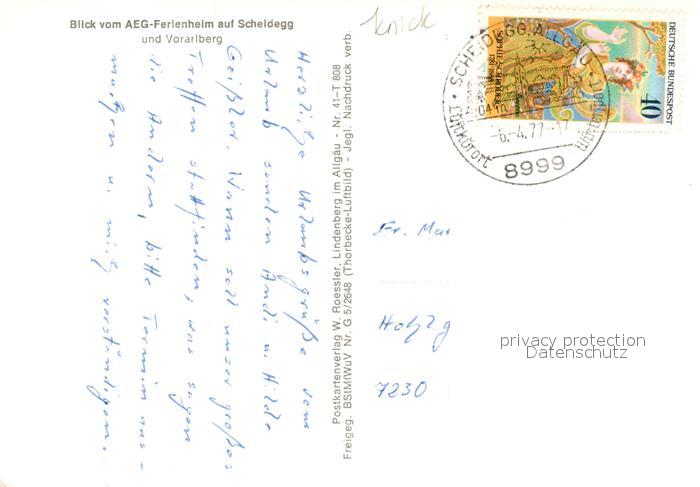 Blick vom AEG-Ferienheim auf Scheidegg
und Vorarlberg
Herzliche Urlaubsgrüße vom
Urlaub senden Andi u. Hilde
Geißler, Wann soll unser großes
Treffen stattfinden, was sagen
die Andern, bitte Termin aus-
machen u. mich verständigen.
Postkartenverlag W. Roessler, Lindenberg im Allgäu - Nr. 41-T 808
Freigeg. BStMfWuV Nr. G 5/2648 (Thorbecke-Luftbild) - Jegl. Nachdruck verb.
knick
SCHEIDEGG, ALLGÄU
Luftkurort
-6.-4.77-17
8999
DEUTSCHE BUNDESPOST
40
SOPHIE SCHRÖDER
Fr. Mar
Holzg
7230
privacy protection
Datenschutz